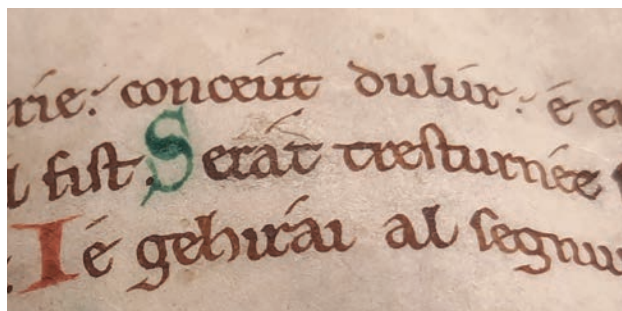 rie: conceút dulúr: é en
l fist. Serát tresturnée
Ié gehirái al segnu